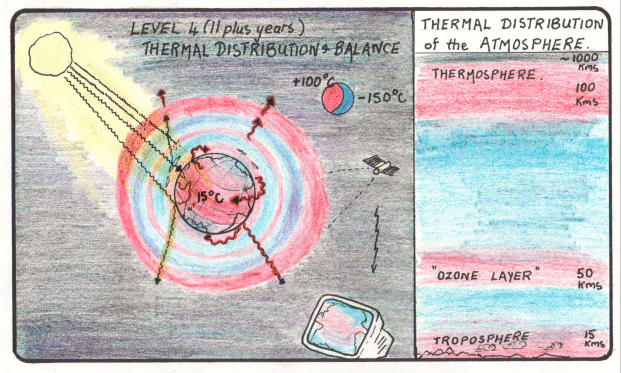 LEVEL 4 (11 plus years)
THERMAL DISTRIBUTION & BALANCE
+100°C
-150°C
15°C
THERMAL DISTRIBUTION
of the ATMOSPHERE.
~1000
Kms
THERMOSPHERE.
100
Kms
"OZONE LAYER"
50
Kms
TROPOSPHERE
15
Kms